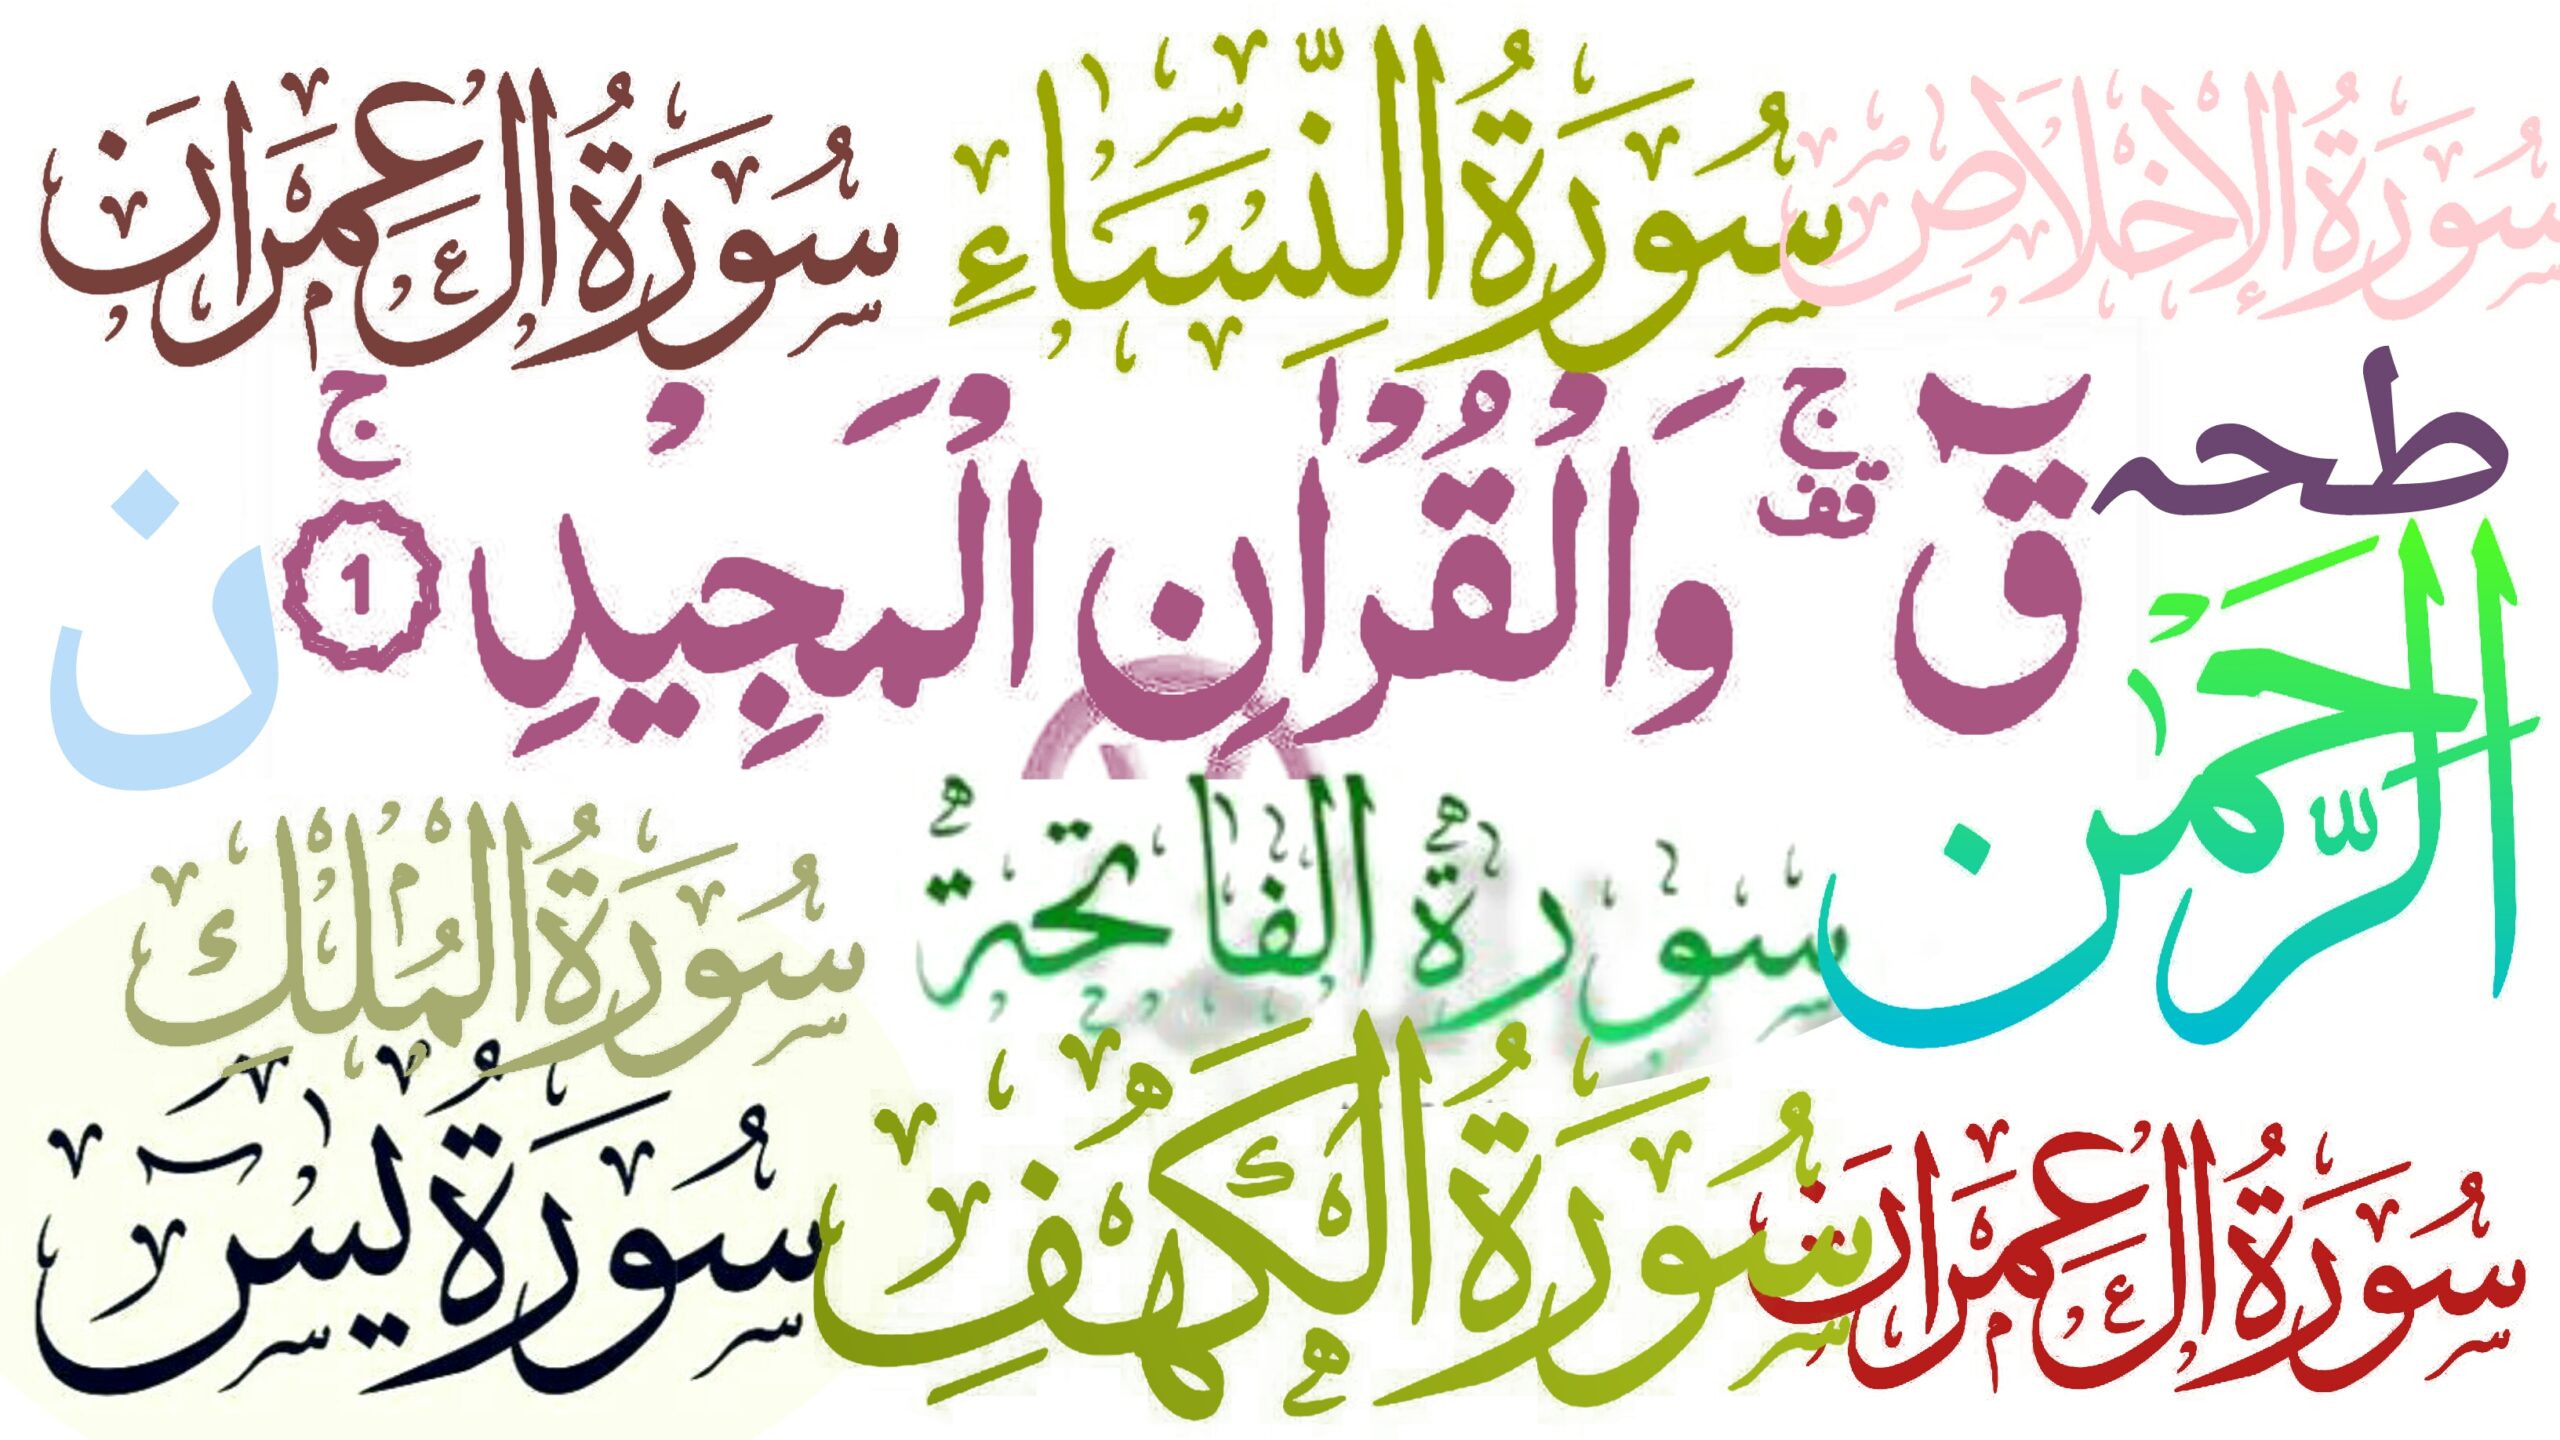 سُورَةُ الْإِخْلَاصِ
سُورَةُ النِّسَاءِ
سُورَةُ اٰلِ عِمْرَانَ
طحہ
قٓ ۚ قف وَالْقُرْاٰنِ الْمَجِيْدِ ۚ 1
ن
الرَّحْمٰن
سورة الفاتحة
سُورَةُ الْمُلْكِ
سُورَةُ اٰلِ عِمْرَانَ
سُورَةُ الْكَهْفِ
سُورَةُ يٰسٓ